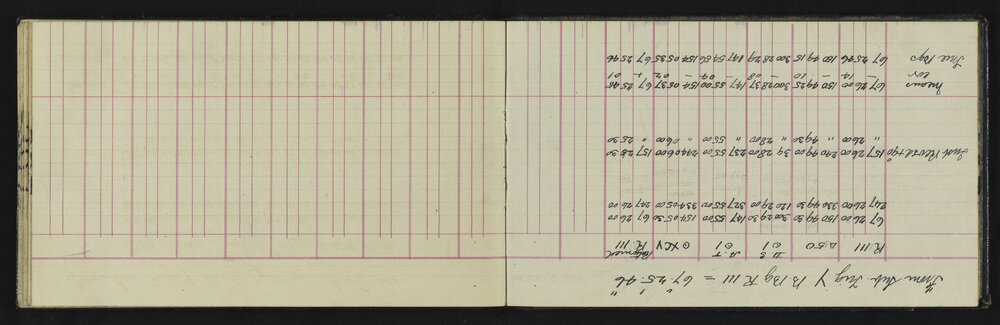 From Sub. Trig Y B Bg R III = 67°.25'.46"
R.III Δ.50 D S ⊙1 A.T ⊙1 ⊙ XCV R III
67 26 00 150 49 30 300 29 30 147 55 00 154 05 30 67 26 00
247 26 00 330 49 30 120 29 00 327 55 00 334 05 00 247 26 00
Inst Rev'd +90° 157 26 00 240 49 00 39 28 00 237 55 00 244 06 00 157 25 30
" 26 00 " 49 30 " 28 00 " 55 00 " 06 00 " 25 30
Means 67 26 00 150 49 25 300 28 37 147 55 00 154 05 37 67 25 45
cor – 14 – 10 – 08 – 04 – 02 + 01
True Bgs 67 25 46 150 49 15 300 28 29 147 54 56 154 05 35 67 25 46